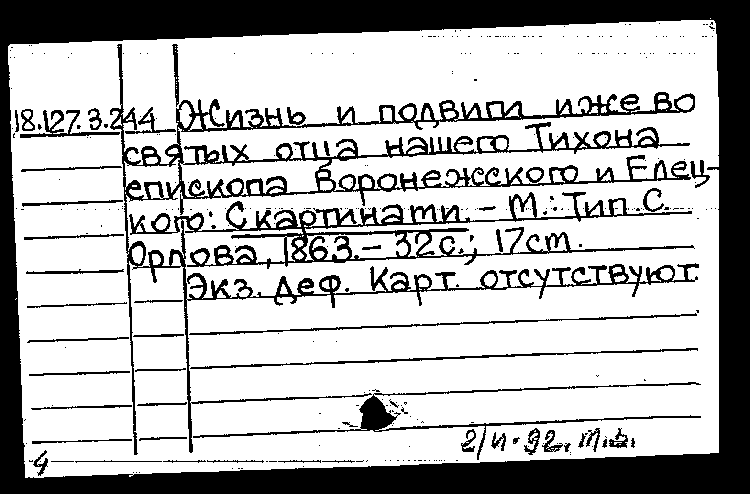 18.127.3.244 Жизнь и подвиги иже во
святых отца нашего Тихона
епископа Воронежского и Елец-
кого: С картинами. – М.: Тип. С.
Орлова, 1863. – 32 с.; 17 cm.
Экз. деф. Карт. отсутствуют.
4